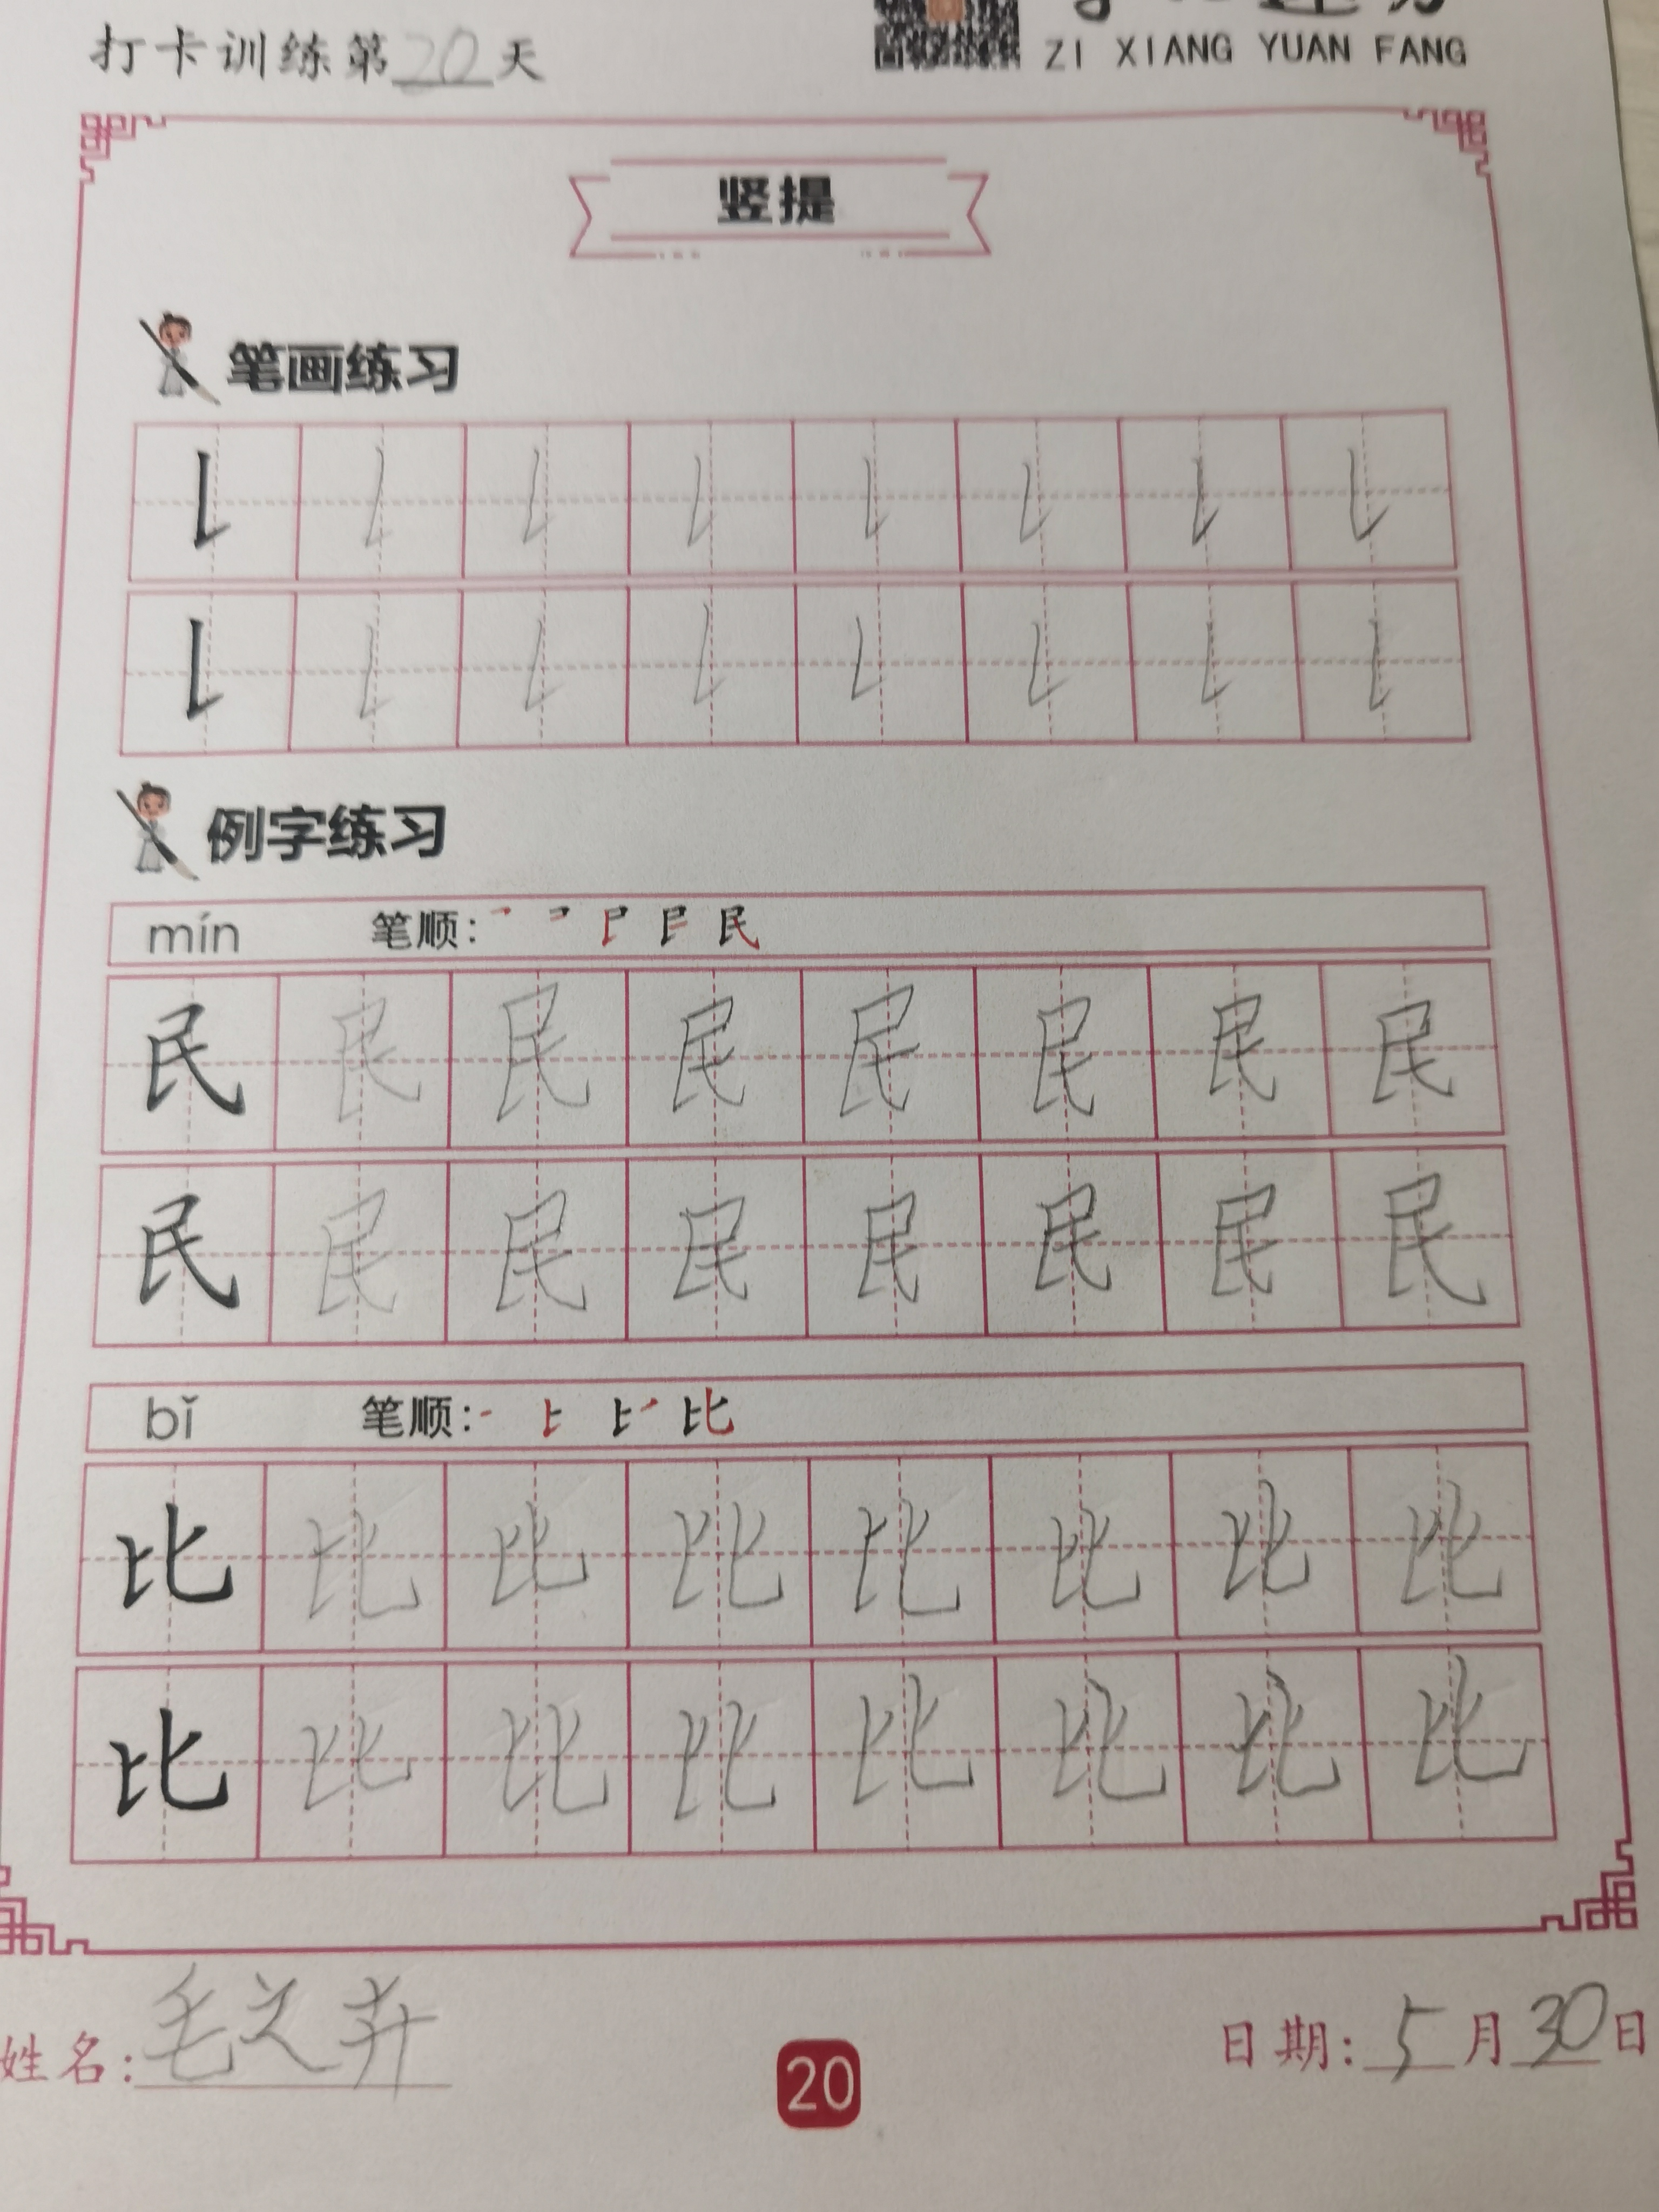 打卡训练第20天
ZI XIANG YUAN FANG
竖提
笔画练习
例字练习
mín 笔顺:
民 民 民 民 民 民 民 民
民 民 民 民 民 民 民 民
bǐ 笔顺:
比 比 比 比 比 比 比 比
比 比 比 比 比 比 比 比
姓名:毛之卉
20
日期:5月30日